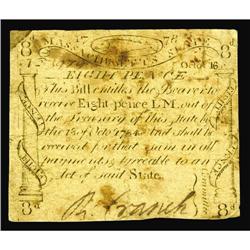 8d 17 78 8d
MASSACHUSETTS STATE
OCTO 16
EIGHT PENCE
This Bill entitles the Bearer to
receive Eight-pence LM. out of
the Treasury of this State by
the 18 of Octr 1784. And shall be
received for that sum in all
payments, agreeable to an
Act of said State.
R Cranch
8d 8d